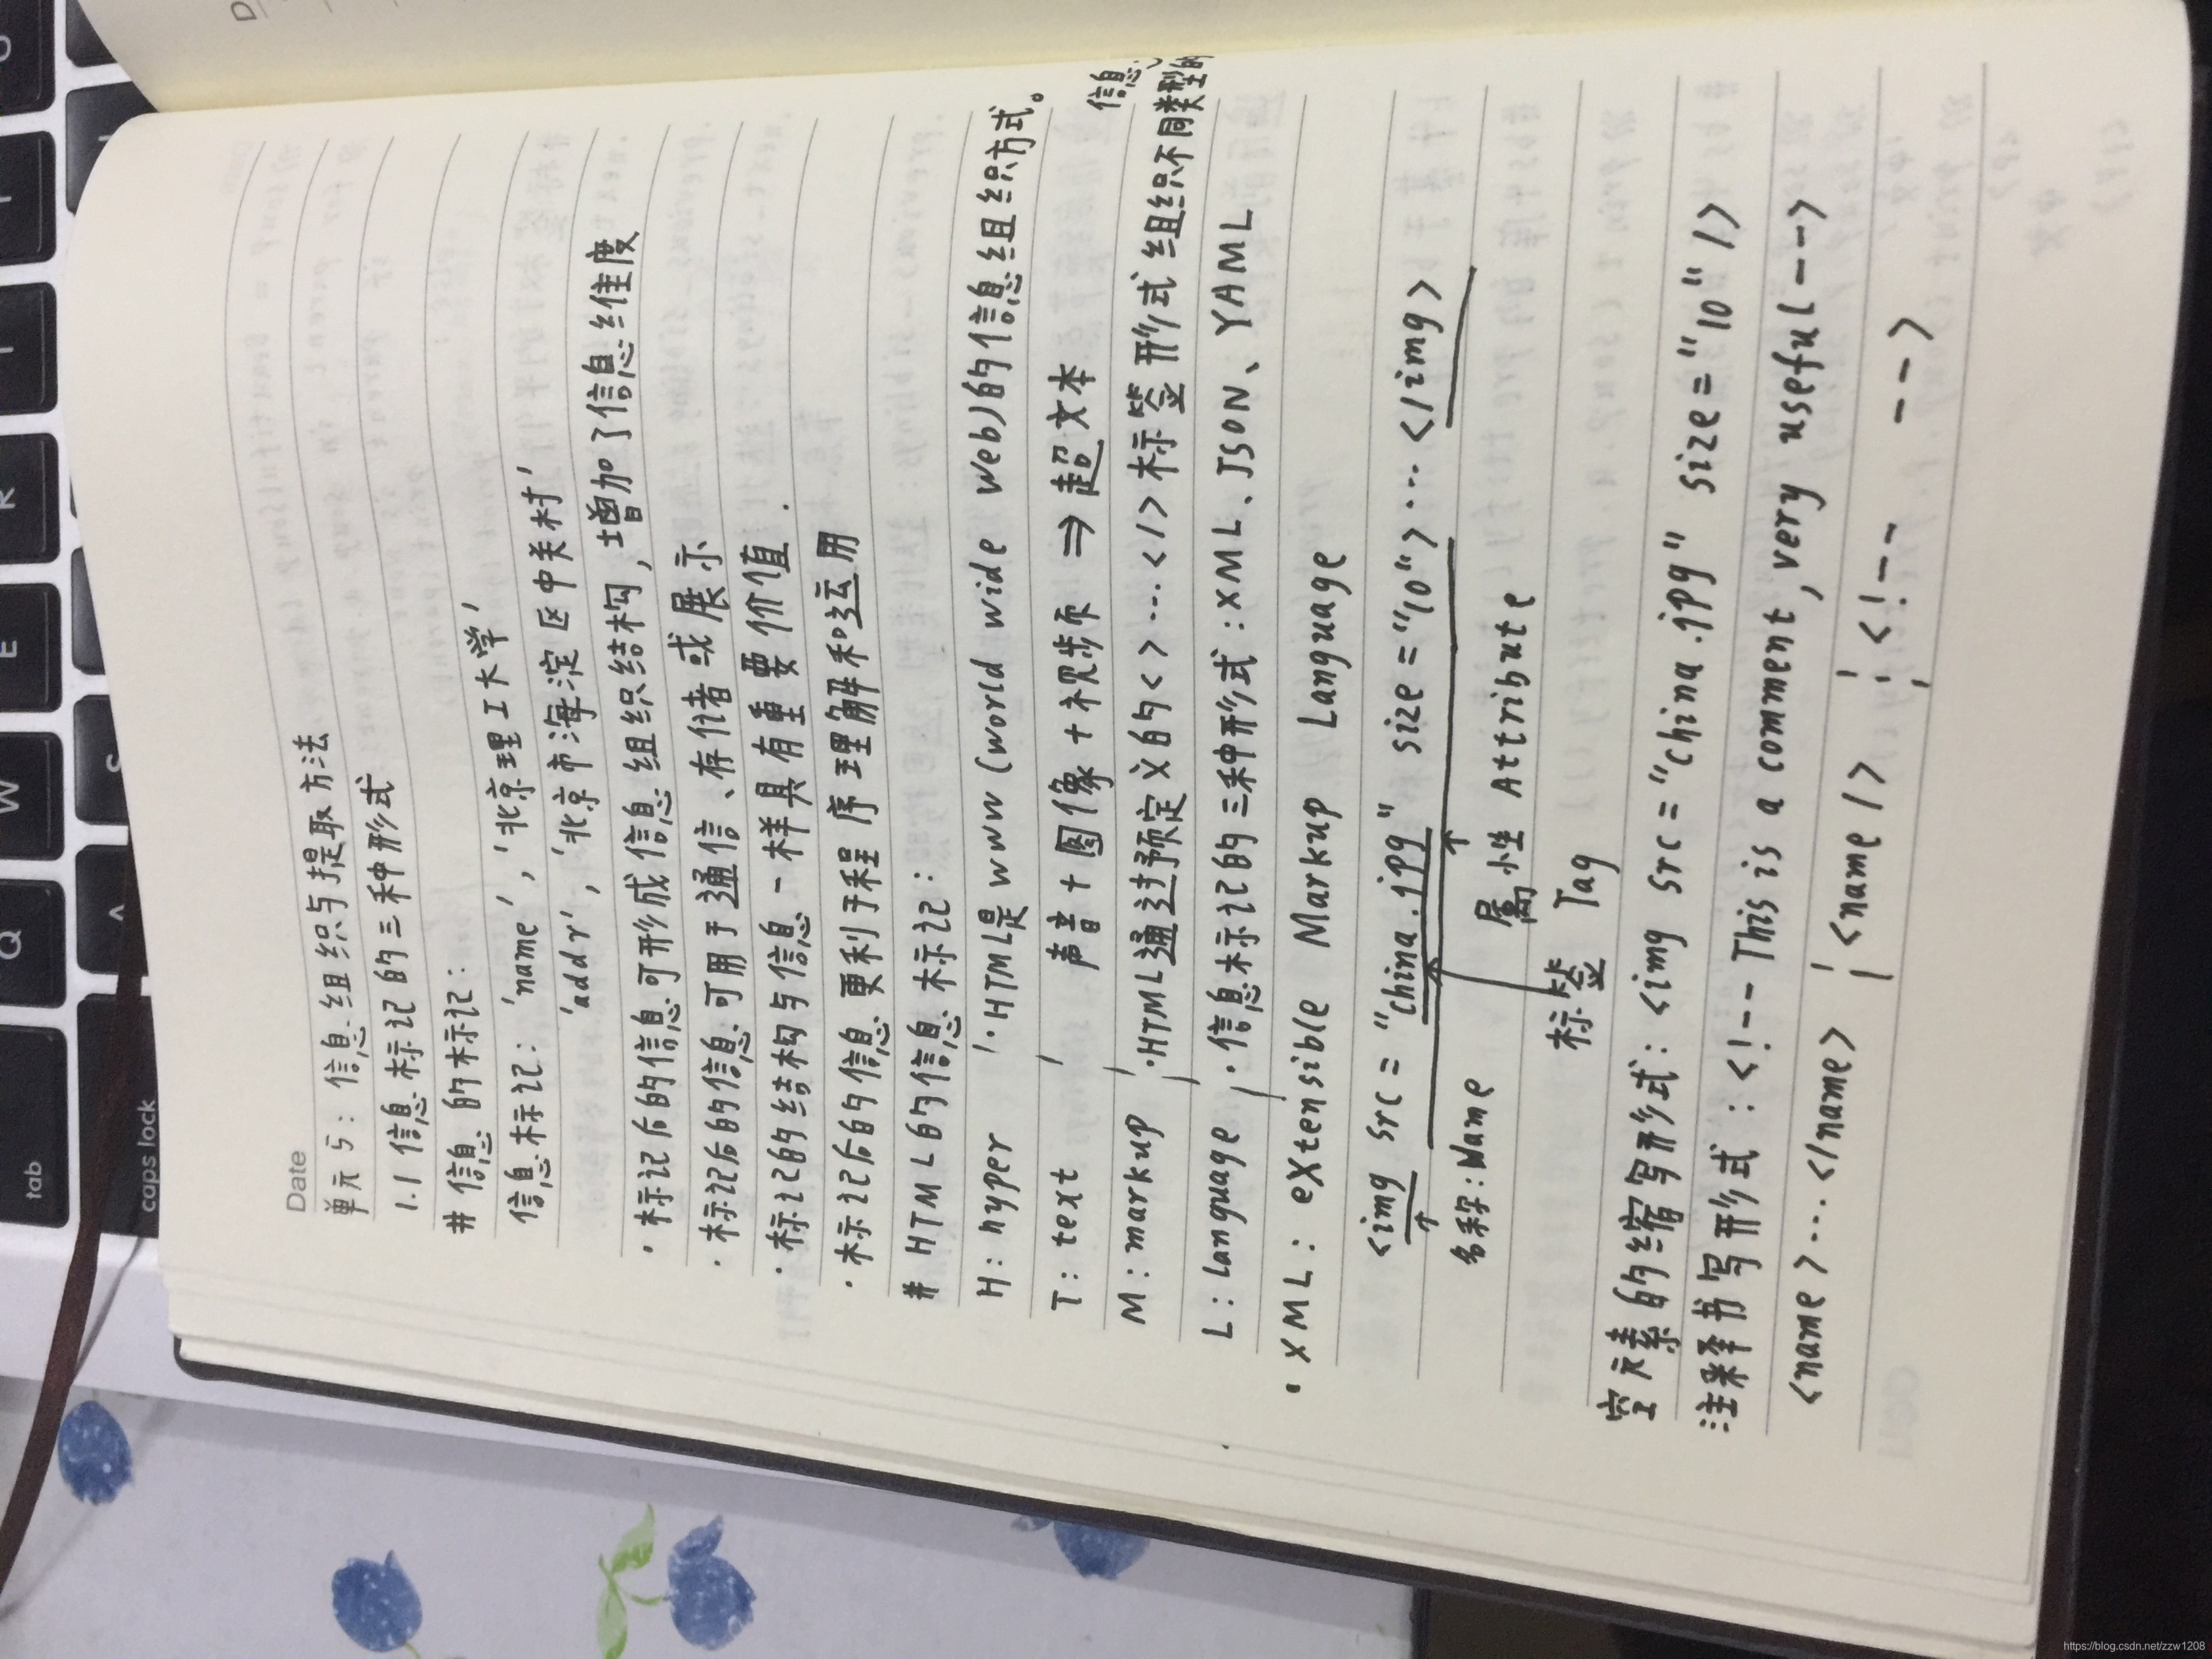 Date
单元5：信息组织与提取方法
1.1 信息标记的三种形式
# 信息的标记：
信息标记：'name'，'北京理工大学'
'addr'，'北京市海淀区中关村'
·标记后的信息可形成信息组织结构，增加了信息维度
·标记后的信息可用于通信、存储或展示
·标记的结构与信息一样具有重要价值.
·标记后的信息更利于程序理解和运用
# HTML的信息标记：
H: hyper ·HTML是www(world wide web)的信息组织方式。
T: text 声音+图像+视频 ⇒ 超文本
M: markup ·HTML通过预定义的<>...</>标签形式组织不同类型的信息
L: language ·信息标记的三种形式：XML、JSON、YAML
·XML: eXtensible Markup Language
<img src="china.jpg" size="10">...</img>
名称: Name 属性 Attribute
标签 Tag
空元素的缩写形式：<img src="china.jpg" size="10"/>
注释书写形式：<!-- This is a comment, very useful -->
<name>...</name> | <name/> | <!-- -->
tab
caps lock
Q
W
E
R
A
S
https://blog.csdn.net/zzw1208